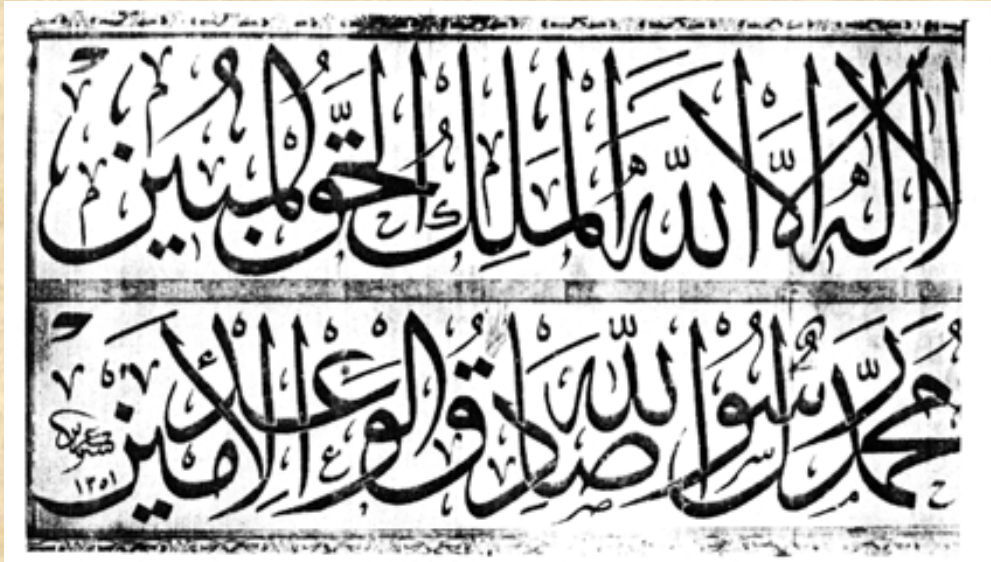 لَا إِلٰهَ إِلَّا اللّٰهُ الْمَلِكُ الْحَقُّ الْمُبِينُ
مُحَمَّدٌ رَسُولُ اللّٰهِ صَادِقُ الْوَعْدِ الْأَمِينُ
١٣٥١